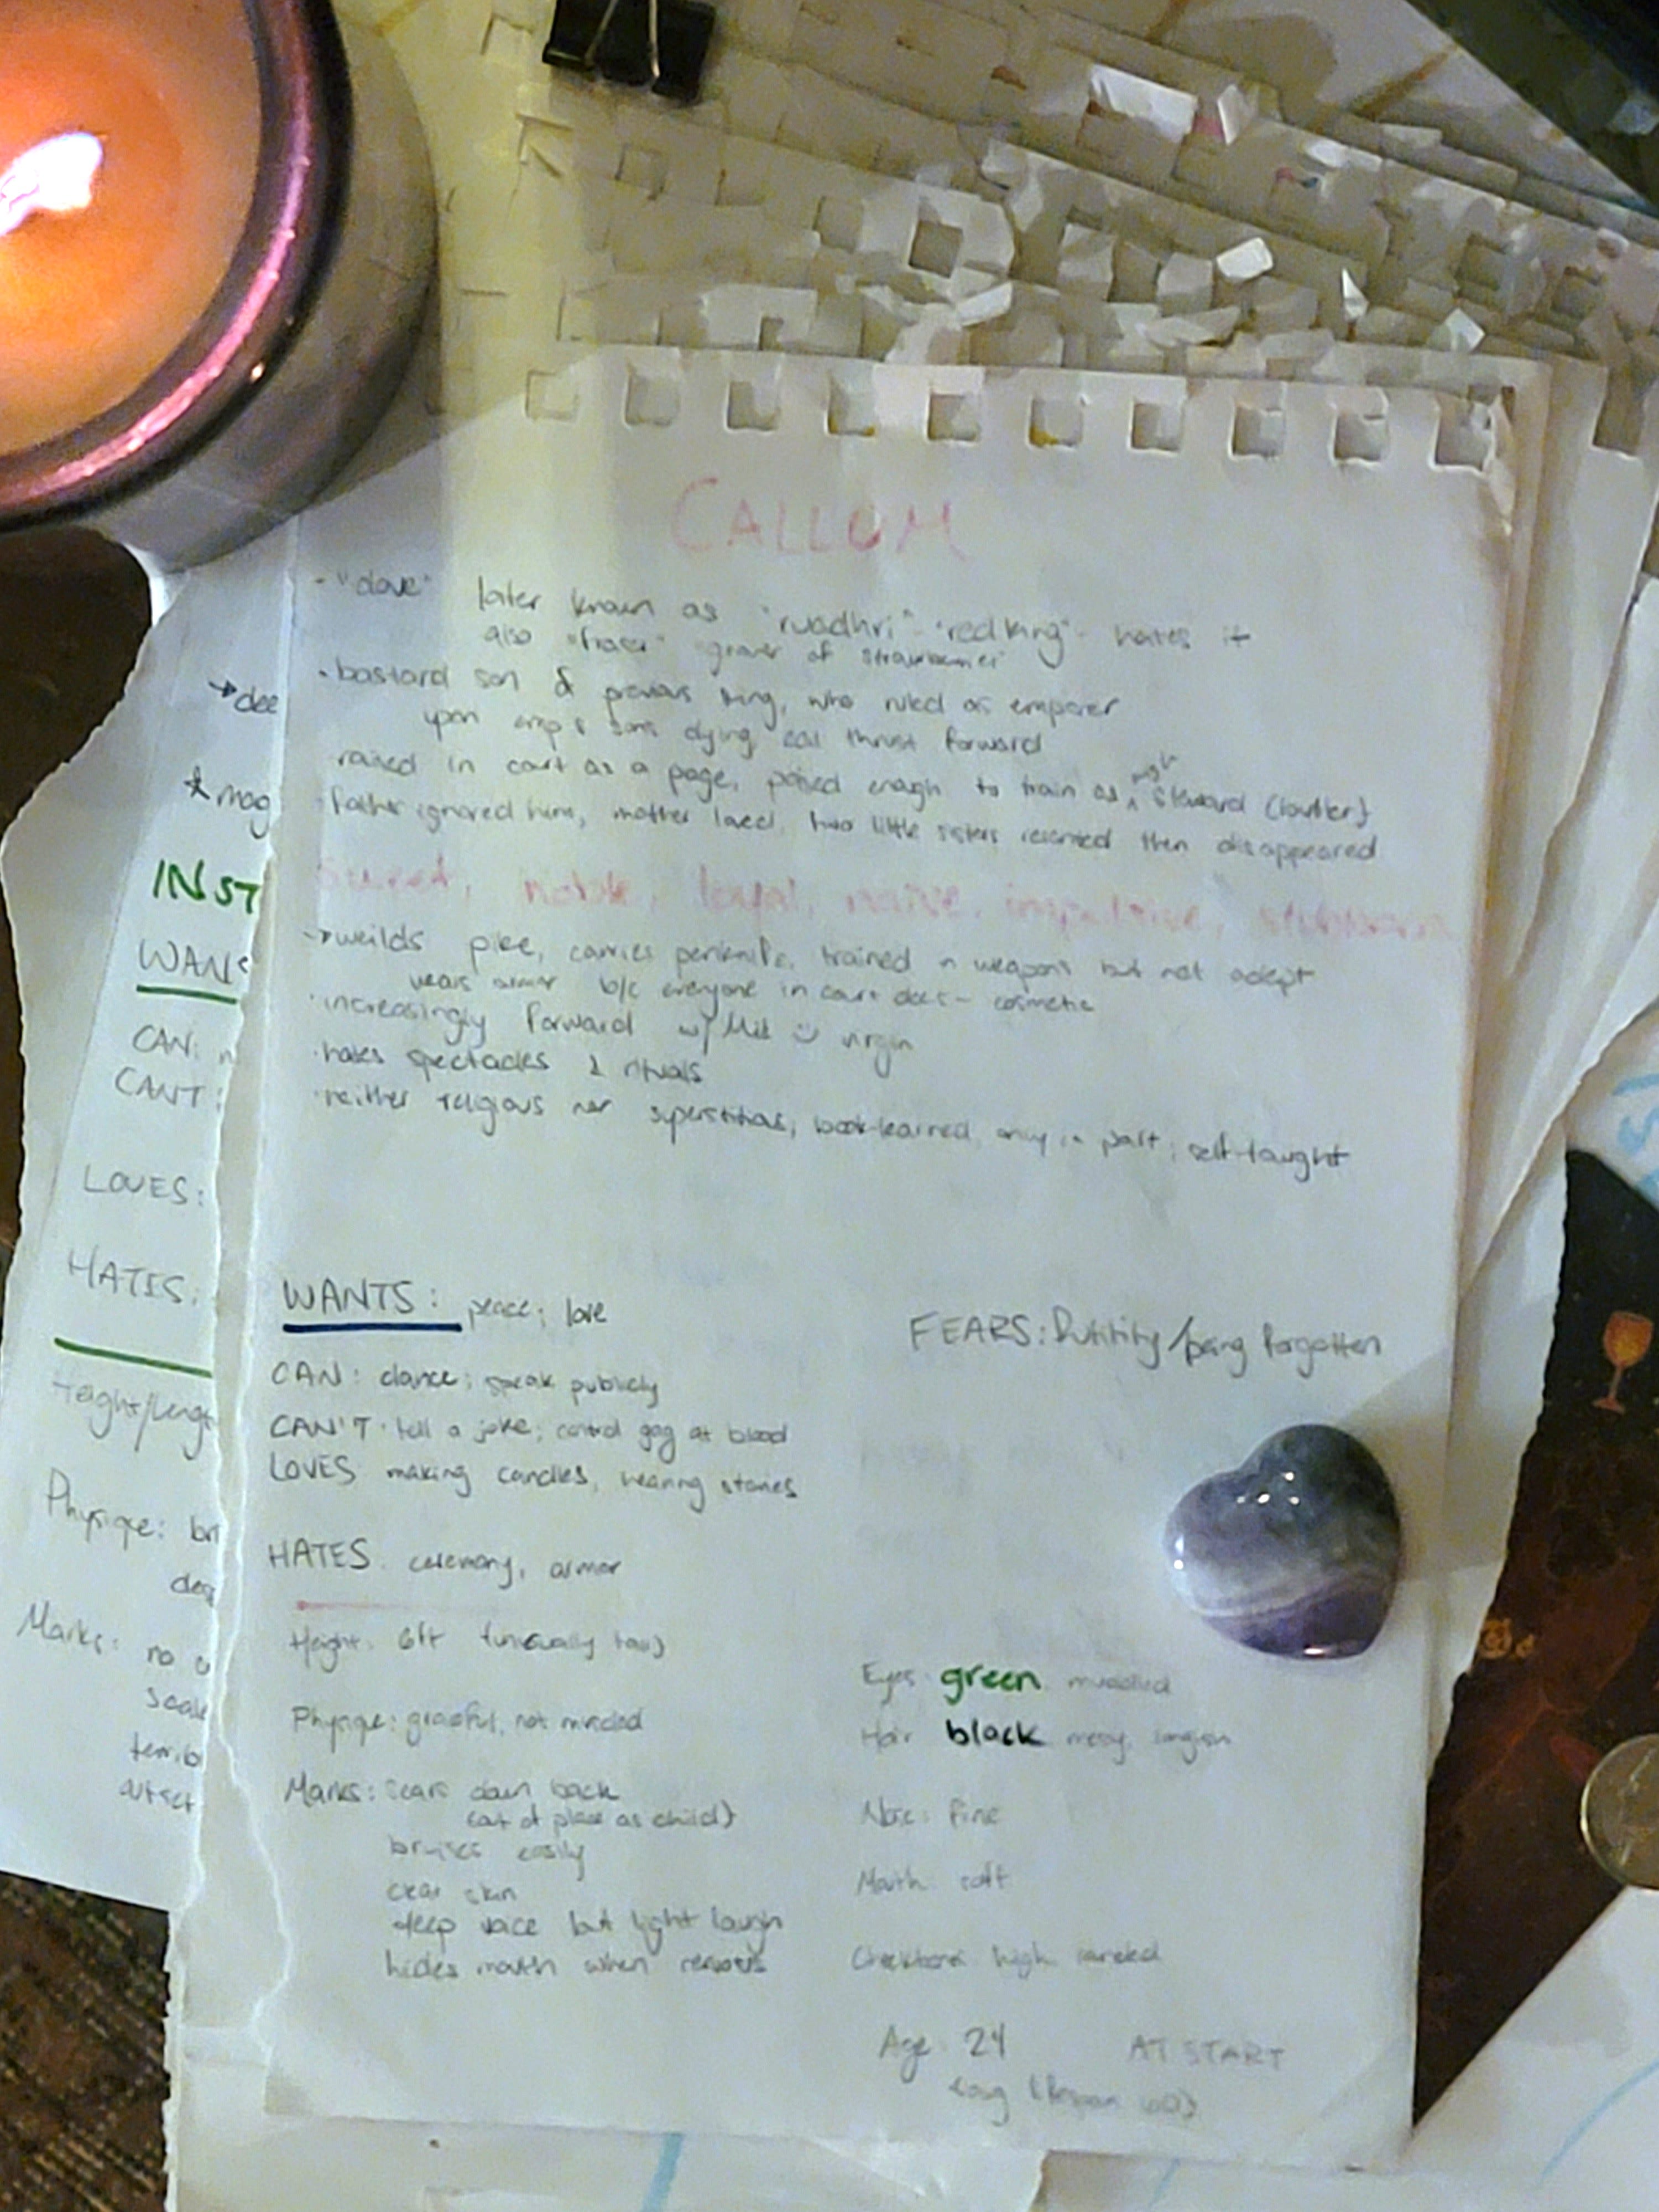 CALLUM
- "dove" later known as "ruadhri" - "red king" - hates it
also "fraser" "grower of strawberries"
· bastard son of previous king, who ruled as emperer
upon emp's sons dying, cal thrust forward
raised in court as a page, poised enough to train as ^ high steward (butler)
· father ignored him, mother loved, two little sisters resented then disappeared
sweet, noble, loyal, naive, impulsive, stubborn
→ weilds pike, carries penknife, trained in weapons but not adept
wears armor b/c everyone in court does - cosmetic
· increasingly forward w/ virgin
· hates spectacles & rituals
· neither religious nor superstitious, book-learned, only in part; self-taught
WANTS: peace; love
FEARS: futility/being forgotten
CAN: dance; speak publicly
CAN'T: tell a joke; control gag at blood
LOVES making candles, hearing stories
HATES: ceremony, armor
Height: 6ft (unusually tall)
Physique: graceful, not muscled
Marks: scars down back
(out of place as child)
bruises easily
clear skin
deep voice but light laugh
hides mouth when nervous
Eyes green muddled
Hair black messy, longish
Nose: fine
Mouth: soft
Cheekbones high
Age 24 AT START
long lifespan
→ dee
* mag
INST
WANTS
CAN: n
CANT:
LOVES:
HATES:
Height/Lengt
Physique: bri
Marks: no
scale
terrib